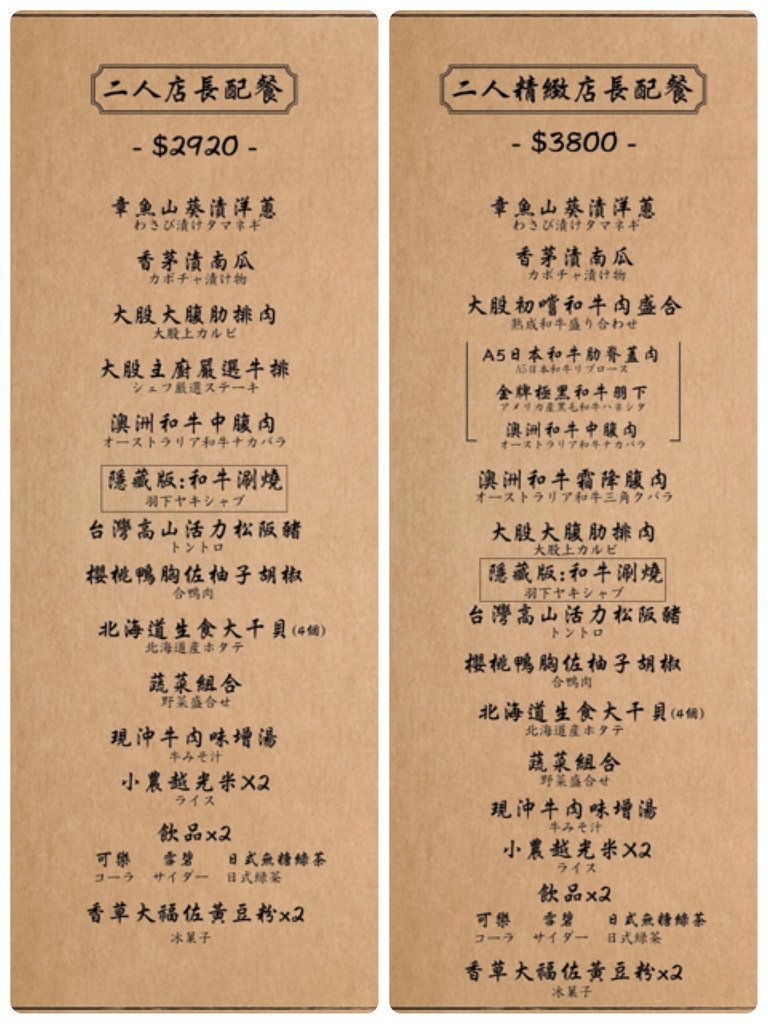 二人店長配餐
- $2920 -
章魚山葵漬洋蔥
わさび漬けタマネギ
香茅漬南瓜
カボチャ漬け物
大股大腹肋排肉
大股上カルビ
大股主廚嚴選牛排
シェフ厳選ステーキ
澳洲和牛中腹肉
オーストラリア和牛ナカバラ
隱藏版:和牛涮燒
羽下ヤキシャブ
台灣高山活力松阪豬
トントロ
櫻桃鴨胸佐柚子胡椒
合鴨肉
北海道生食大干貝(4個)
北海道産ホタテ
蔬菜組合
野菜盛合せ
現沖牛肉味增湯
牛みそ汁
小農越光米X2
ライス
飲品x2
可樂 雪碧 日式無糖綠茶
コーラ サイダー 日式緑茶
香草大福佐黃豆粉x2
冰菓子
二人精緻店長配餐
- $3800 -
章魚山葵漬洋蔥
わさび漬けタマネギ
香茅漬南瓜
カボチャ漬け物
大股初嚐和牛肉盛合
熟成和牛盛り合わせ
A5日本和牛肋脊蓋肉
A5日本和牛リブロース
金牌極黑和牛羽下
アメリカ産黒毛和牛ハネシタ
澳洲和牛中腹肉
オーストラリア和牛ナカバラ
澳洲和牛霜降腹肉
オーストラリア和牛三角タバラ
大股大腹肋排肉
大股上カルビ
隱藏版:和牛涮燒
羽下ヤキシャブ
台灣高山活力松阪豬
トントロ
櫻桃鴨胸佐柚子胡椒
合鴨肉
北海道生食大干貝(4個)
北海道産ホタテ
蔬菜組合
野菜盛合せ
現沖牛肉味增湯
牛みそ汁
小農越光米X2
ライス
飲品x2
可樂 雪碧 日式無糖綠茶
コーラ サイダー 日式緑茶
香草大福佐黃豆粉x2
冰菓子